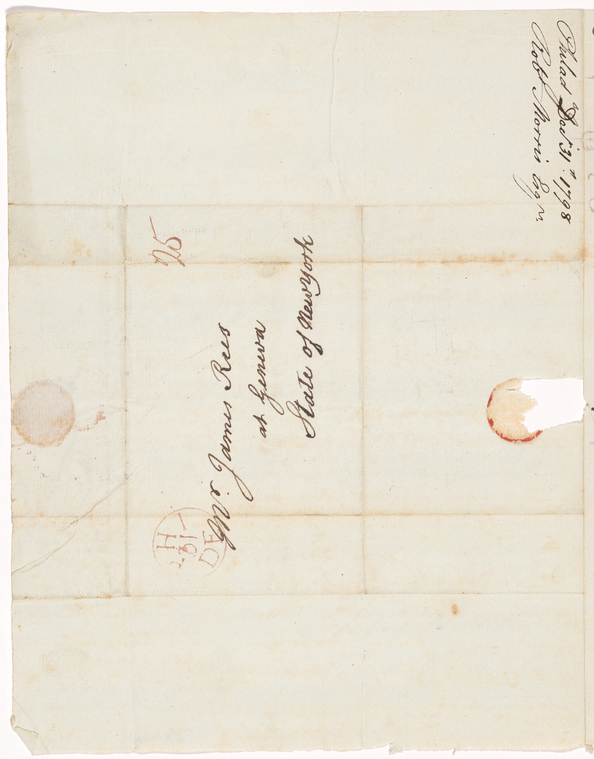 Philad Dec 31, 1798
Robt Morris Esqr.
25
Mr. James Rees
at Geneva
State of New York
H
31
DE